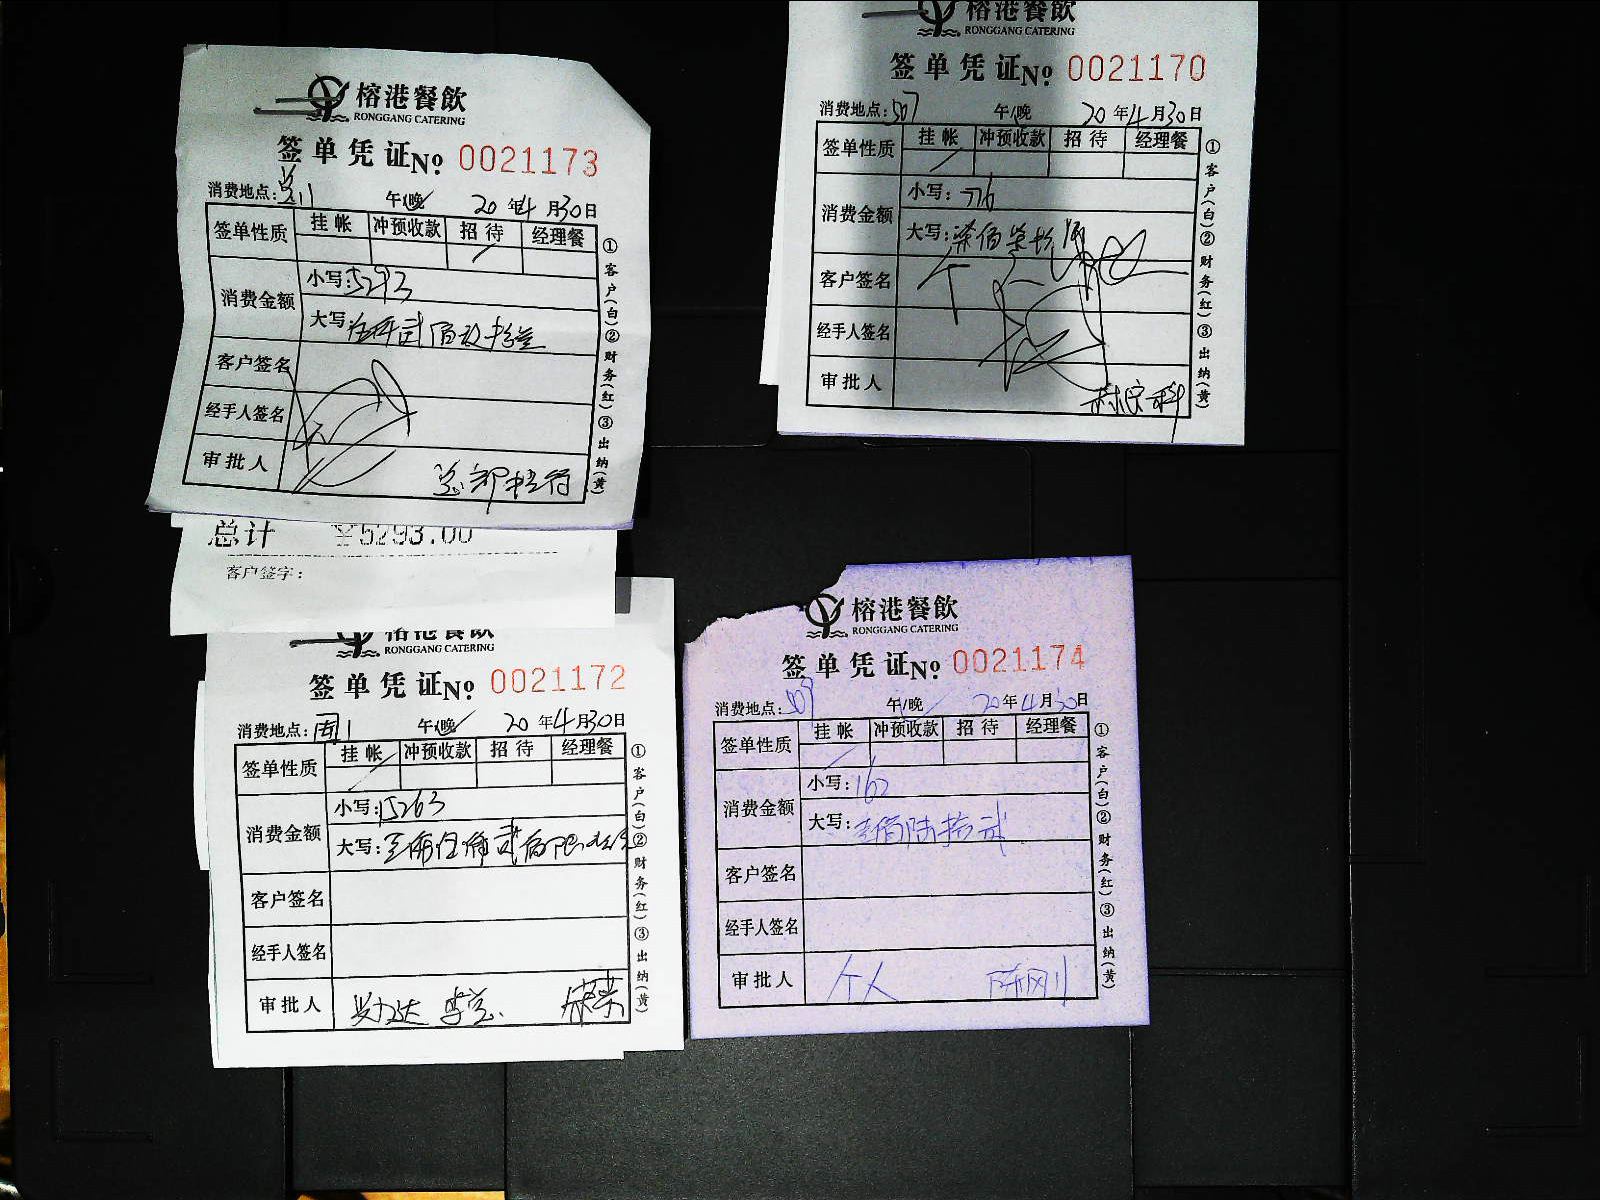 榕港餐飲
RONGGANG CATERING
签单凭证 No 0021173
消费地点: 午/晚 20年4月30日
签单性质 挂帐 冲预收款 招待 经理餐
消费金额 小写: 5293
大写: 伍仟贰佰玖拾叁
客户签名
经手人签名
审批人 总部招待
①客户(白)②财务(红)③出纳(黄)
总计 ¥5293.00
客户签字:
榕港餐飲
RONGGANG CATERING
签单凭证 No 0021170
消费地点: 507 午/晚 20年4月30日
签单性质 挂帐 冲预收款 招待 经理餐
消费金额 小写: 776
大写: 柒佰柒拾
客户签名 个人
经手人签名
审批人
①客户(白)②财务(红)③出纳(黄)
榕港餐飲
RONGGANG CATERING
签单凭证 No 0021172
消费地点: 午/晚 20年4月30日
签单性质 挂帐 冲预收款 招待 经理餐
消费金额 小写: 15263
大写: 壹万伍仟贰佰陆拾
客户签名
经手人签名
审批人
①客户(白)②财务(红)③出纳(黄)
榕港餐飲
RONGGANG CATERING
签单凭证 No 0021174
消费地点: 509 午/晚 20年4月30日
签单性质 挂帐 冲预收款 招待 经理餐
消费金额 小写: 162
大写: 壹佰陆拾贰
客户签名
经手人签名
审批人 个人 陈刚
①客户(白)②财务(红)③出纳(黄)